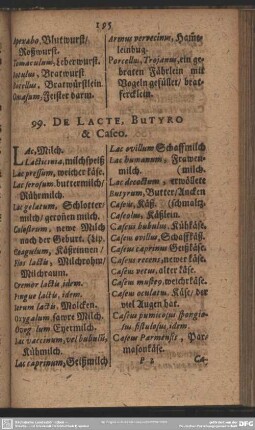 195
Apexabo, Blutwurst/
Roßwurst.
Tomaculum, Leberwurst.
Botulus, Bratwurst
Botellus, Bratwürstlein
Omasum, Feister darm.
Armus vervecinus, Hamelleinbug.
Porcellus, Trojanus, ein gebraten
Fährlein mit
Vögeln gefüllet/ bratfercklein.
99. DE LACTE, BUTYRO
& Caseo.
LAc, Milch.
Lacticinia, milchspeiß
Lac pressum, weicher käse.
Lac serosum, buttermilch/
Rührmilch.
Lac gelatum, Schlottermilch/
gerońen milch.
Colostrum, newe Milch
noch der Geburt.
Coagulum, Käsrinnen/
Flos lactis, Milchrohm/
Milchraum.
Cremor lactis idem.
Pingue lactis, idem.
Serum lactis, Molcken.
Oxygalum, sawre Milch.
Oogalum Eyermilch.
Lac vaccinum, vel bubulū,
Kühmilch.
Lac caprinum, Geißmilch
Lac ovillum Schaffmilch
Lac humanum, Frawenmilch.
(milch.
Lac decoctum, erwöllete
Butyrum, Butter/ Ancken
Caseus, Käß. (schmaltz.
Caseolus, Käßlein.
Caseus bubulus, Kühkäse.
Caseus ovillus, Schaffkäß.
Caseus caprinus Geißkäse.
Caseus recens, newer käse.
Caseus vetus, alter käse.
Caseus musteus, weichkäse.
Caseus oculatus, Käse/ der
viel Augen hat.
Caseus pumicosus spongiosus
fistulosus, idem.
Caseus Parmensis, Parmosonkäse.
Ca-